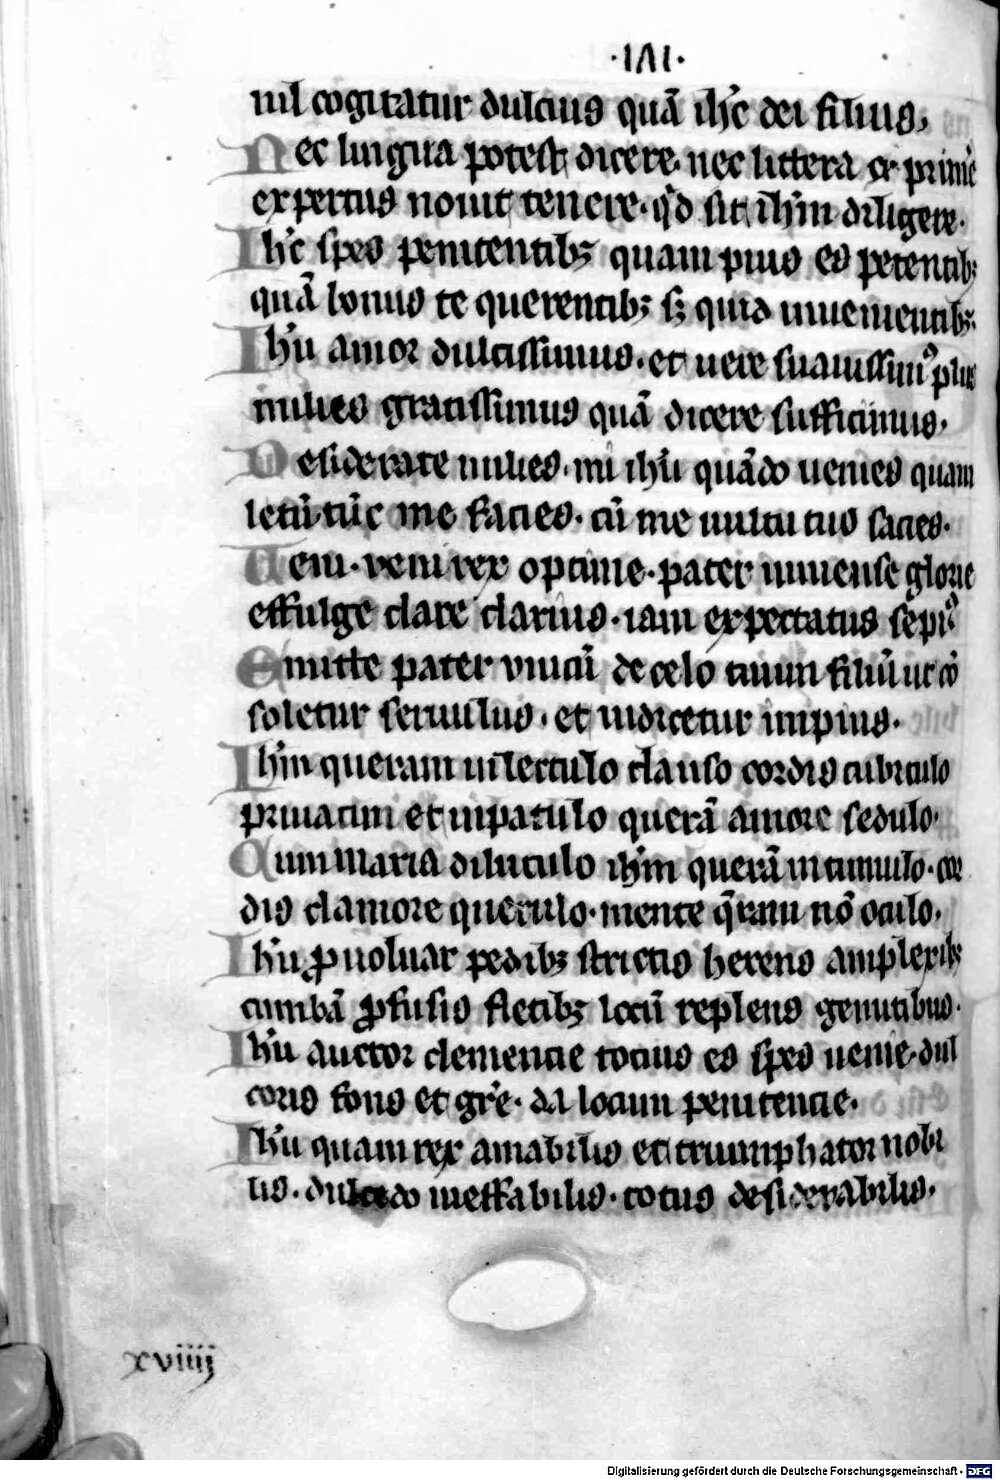 ·IVI·
nil cogitatur dulcius quā ih̄c dei filius,
Nec lingua potest dicere· nec littera exprim̄e
expertus nouit tenere· qd̕ sit ih̄m diligere·
Ih̄c spes penitentibꝫ quam pius es petentibꝫ
quā bonus te querentibꝫ sꝫ quid inuenientibꝫ·
Ih̄u amor dulcissimus· et uere suauissimꝰ plus
milies gratissimus quā dicere sufficimus·
Desiderate milies· mi ih̄u quādo uenies quam
letū me facies· cū me uultu tuo sacies·
Ueni· veni rex optime· pater inmense glorie
effulge clare clarius· iam expectatus sepiꝰ
Emitte pater vnicū de celo tuum filiū ut cō
soletur seruulus· et iudicetur impius·
Ih̄m queram in lectulo clauso cordis cubiculo
priuatim et in patulo querā amore sedulo·
Cum maria diluculo ih̄m querā in tumulo· cor
dis clamore querulo· mente q̄ram nō oculo·
Ih̄u ꝓuoluar pedibꝫ strictis herens amplexibꝫ
cumbā ꝓfusis fletibꝫ locū replens gemitibus·
Ih̄u auctor clemencie totius es spes uenie· dul
coris fons et gr̄e· da locum penitencie·
Ih̄u quam rex amabilis et triumphator nobi
lis· dulcedo ineffabilis· totus desiderabilis·
xviiij
Digitalisierung gefördert durch die Deutsche Forschungsgemeinschaft - DFG